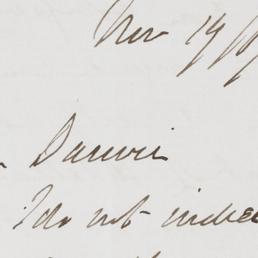 Nov 19
Darwin
I do not indee